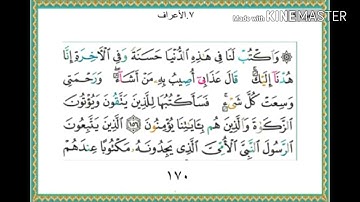 ٧.الأعراف
Made With KINEMASTER
۞ وَٱكۡتُبۡ لَنَا فِي هَٰذِهِ ٱلدُّنۡيَا حَسَنَةٗ وَفِي ٱلۡأٓخِرَةِ إِنَّا
هُدۡنَآ إِلَيۡكَۚ قَالَ عَذَابِيٓ أُصِيبُ بِهِۦ مَنۡ أَشَآءُۖ وَرَحۡمَتِي
وَسِعَتۡ كُلَّ شَيۡءٖۚ فَسَأَكۡتُبُهَا لِلَّذِينَ يَتَّقُونَ وَيُؤۡتُونَ
ٱلزَّكَوٰةَ وَٱلَّذِينَ هُم بِـَٔايَٰتِنَا يُؤۡمِنُونَ ١٥٦ ٱلَّذِينَ يَتَّبِعُونَ
ٱلرَّسُولَ ٱلنَّبِيَّ ٱلۡأُمِّيَّ ٱلَّذِي يَجِدُونَهُۥ مَكۡتُوبًا عِندَهُمۡ
١٧٠